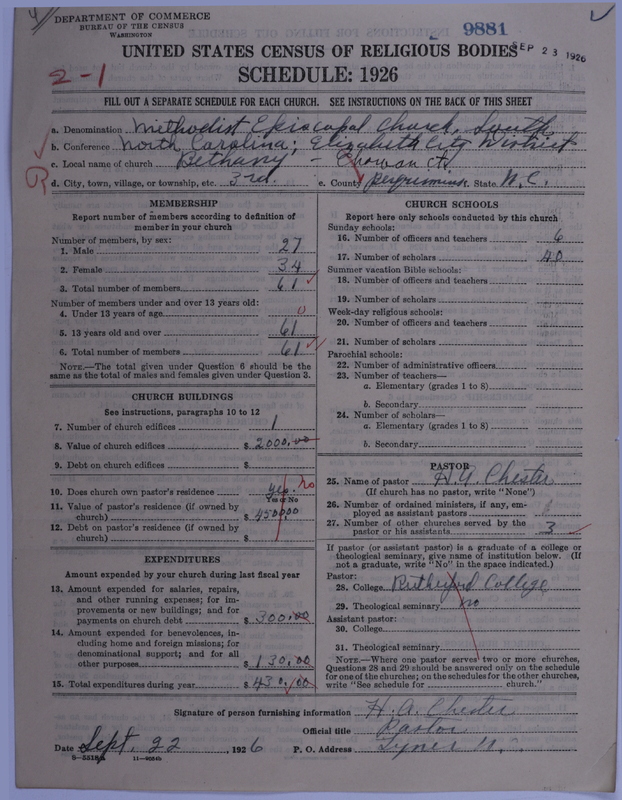 DEPARTMENT OF COMMERCE
BUREAU OF THE CENSUS
WASHINGTON
9881
SEP 23 1926
UNITED STATES CENSUS OF RELIGIOUS BODIES
SCHEDULE: 1926
2-1
FILL OUT A SEPARATE SCHEDULE FOR EACH CHURCH. SEE INSTRUCTIONS ON THE BACK OF THIS SHEET
a. Denomination Methodist Episcopal Church, South
b. Conference North Carolina; Elizabeth City District
c. Local name of church Bethany - Chowan Ct
d. City, town, village, or township, etc. 3rd. e. County Perquimins. State N.C.
MEMBERSHIP
Report number of members according to definition of member in your church
Number of members, by sex:
1. Male 27
2. Female 34
3. Total number of members 61
Number of members under and over 13 years old:
4. Under 13 years of age 0
5. 13 years old and over 61
6. Total number of members 61
NOTE.—The total given under Question 6 should be the same as the total of males and females given under Question 3.
CHURCH BUILDINGS
See instructions, paragraphs 10 to 12
7. Number of church edifices 1
8. Value of church edifices $ 2000.00
9. Debt on church edifices $
10. Does church own pastor's residence yes no
Yes or No
11. Value of pastor's residence (if owned by church) $ 450000
12. Debt on pastor's residence (if owned by church) $
EXPENDITURES
Amount expended by your church during last fiscal year
13. Amount expended for salaries, repairs, and other running expenses; for improvements or new buildings; and for payments on church debt $ 300.00
14. Amount expended for benevolences, including home and foreign missions; for denominational support; and for all other purposes $ 130.00
15. Total expenditures during year $ 430.00
CHURCH SCHOOLS
Report here only schools conducted by this church
Sunday schools:
16. Number of officers and teachers 6
17. Number of scholars 40
Summer vacation Bible schools:
18. Number of officers and teachers
19. Number of scholars
Week-day religious schools:
20. Number of officers and teachers
21. Number of scholars
Parochial schools:
22. Number of administrative officers
23. Number of teachers—
a. Elementary (grades 1 to 8)
b. Secondary
24. Number of scholars—
a. Elementary (grades 1 to 8)
b. Secondary
PASTOR
25. Name of pastor H. A. Chester
(If church has no pastor, write "None")
26. Number of ordained ministers, if any, employed as assistant pastors
27. Number of other churches served by the pastor or his assistants 3
If pastor (or assistant pastor) is a graduate of a college or theological seminary, give name of institution below. (If not a graduate, write "No" in the space indicated.)
Pastor:
28. College Rutherford College
29. Theological seminary no
Assistant pastor:
30. College
31. Theological seminary
NOTE.—Where one pastor serves two or more churches, Questions 28 and 29 should be answered only on the schedule for one of the churches; on the schedules for the other churches, write "See schedule for church."
Signature of person furnishing information H. A. Chester
Official title Pastor
Date Sept. 22, 1926 P. O. Address Tyner N.C.